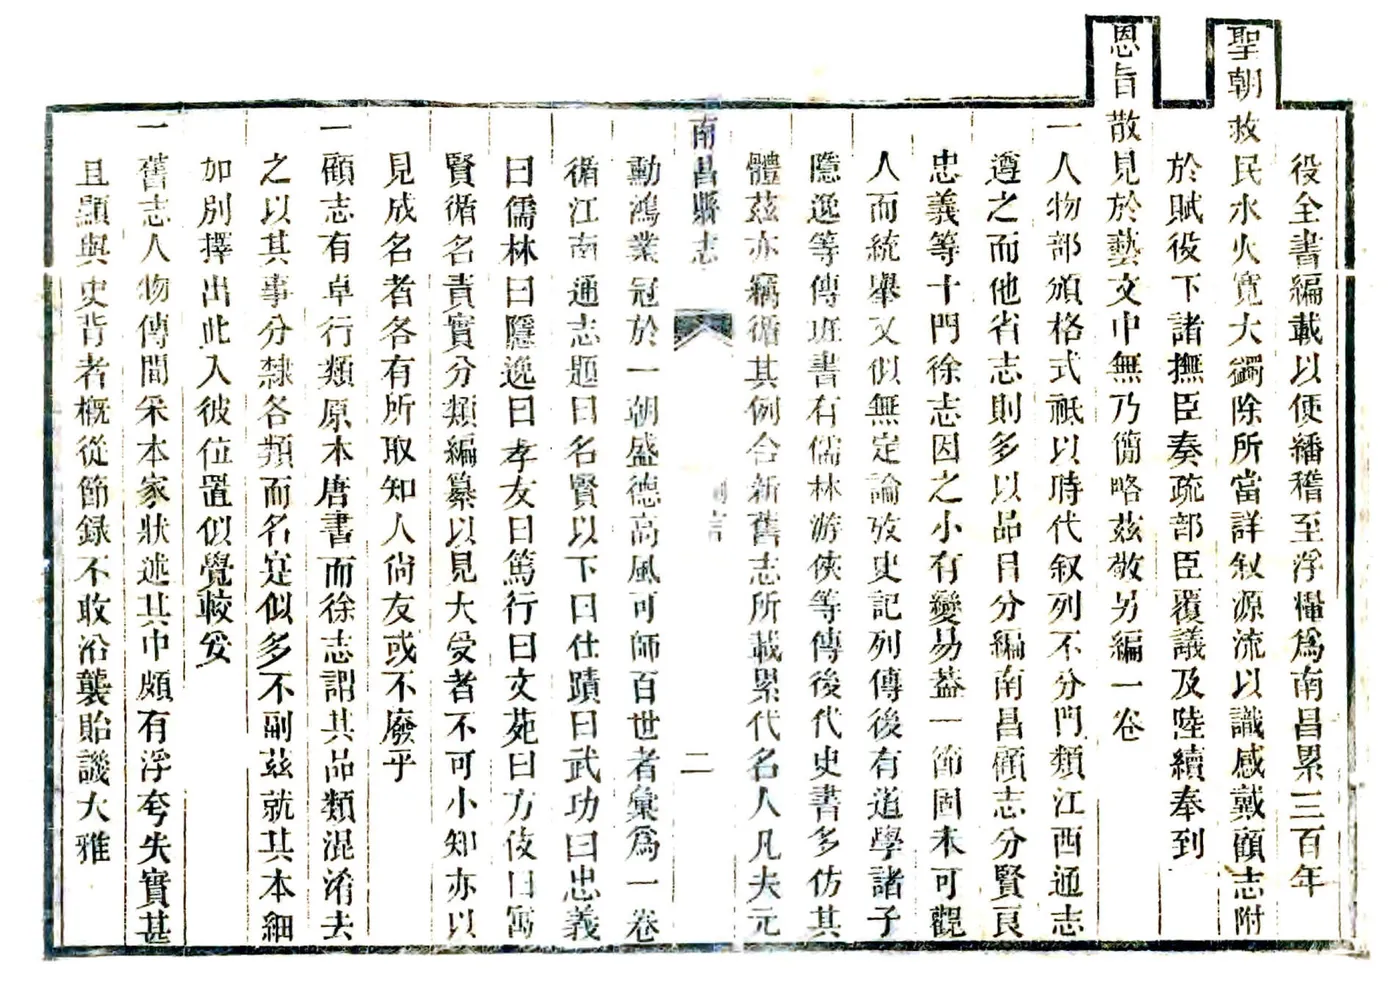 役全書編載以便繙稽至浮糧爲南昌累三百年
聖朝救民水火寛大蠲除所當詳叙源流以識感戴顧志附
於賦役下諸撫臣奏疏部臣覆議及陸續奉到
恩旨散見於藝文中無乃簡略茲敬另編一卷
一人物部頒格式祗以時代叙列不分門類江西通志
遵之而他省志則多以品目分編南昌顧志分賢良
忠義等十門徐志因之小有變易蓋一節固未可觀
人而統舉又似無定論攷史記列傳後有道學諸子
隱逸等傳班書有儒林游俠等傳後代史書多仿其
體茲亦竊循其例合新舊志所載累代名人凡夫元
南昌縣志
例言
二
勳鴻業冠於一朝盛德高風可師百世者彙爲一卷
循江南通志題曰名賢以下曰仕蹟曰武功曰忠義
曰儒林曰隱逸曰孝友曰篤行曰文苑曰方伎曰寓
賢循名責實分類編纂以見大受者不可小知亦以
見成名者各有所取知人尙友或不廢乎
一顧志有卓行類原本唐書而徐志謂其品類混淆去
之以其事分隸各類而名寔似多不副茲就其本細
加別擇出此入彼位置似覺較妥
一舊志人物傳間采本家狀述其中頗有浮夸失實甚
且顯與史背者槪從節録不敢沿襲貽譏大雅